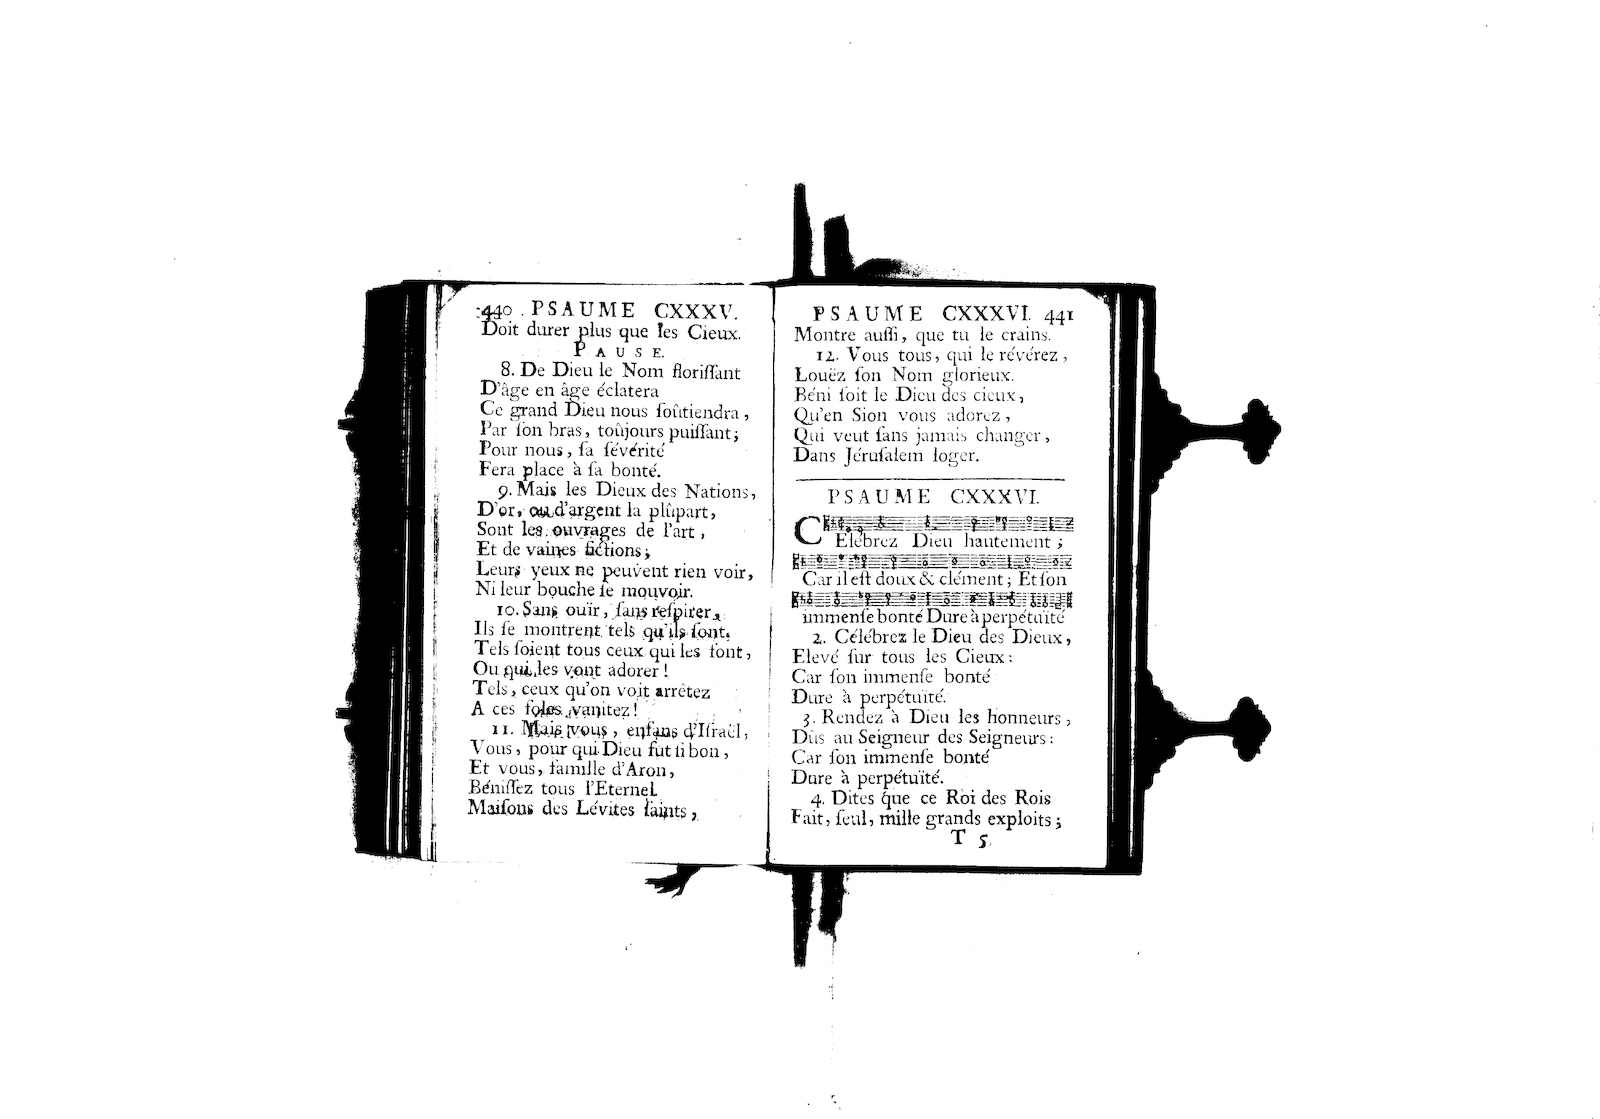 440 . PSAUME CXXXV.
Doit durer plus que les Cieux.
PAUSE.
8. De Dieu le Nom floriſſant
D'âge en âge éclatera
Ce grand Dieu nous ſoûtiendra,
Par ſon bras, toûjours puiſſant;
Pour nous, ſa ſévérité
Fera place à ſa bonté.
9. Mais les Dieux des Nations,
D'or, ou d'argent la plûpart,
Sont les ouvrages de l'art,
Et de vaines fictions;
Leurs yeux ne peuvent rien voir,
Ni leur bouche ſe mouvoir.
10. Sans ouïr, ſans reſpirer,
Ils ſe montrent tels qu'ils ſont.
Tels ſoient tous ceux qui les font,
Ou qui les vont adorer!
Tels, ceux qu'on voit arrêtez
A ces foles vanitez!
11. Mais vous, enfans d'Iſraël,
Vous, pour qui Dieu fut ſi bon,
Et vous, famille d'Aron,
Béniſſez tous l'Eternel
Maiſons des Lévites ſaints,
PSAUME CXXXVI. 441
Montre auſſi, que tu le crains.
12. Vous tous, qui le révérez,
Louëz ſon Nom glorieux.
Béni ſoit le Dieu des cieux,
Qu'en Sion vous adorez,
Qui veut ſans jamais changer,
Dans Jéruſalem loger.
PSAUME CXXXVI.
CElébrez Dieu hautement;
Car il eſt doux & clément; Et ſon
immenſe bonté Dure à perpétuïté
2. Célébrez le Dieu des Dieux,
Elevé ſur tous les Cieux:
Car ſon immenſe bonté
Dure à perpétuïté.
3. Rendez à Dieu les honneurs,
Dûs au Seigneur des Seigneurs:
Car ſon immenſe bonté
Dure à perpétuïté.
4. Dites que ce Roi des Rois
Fait, ſeul, mille grands exploits;
T 5